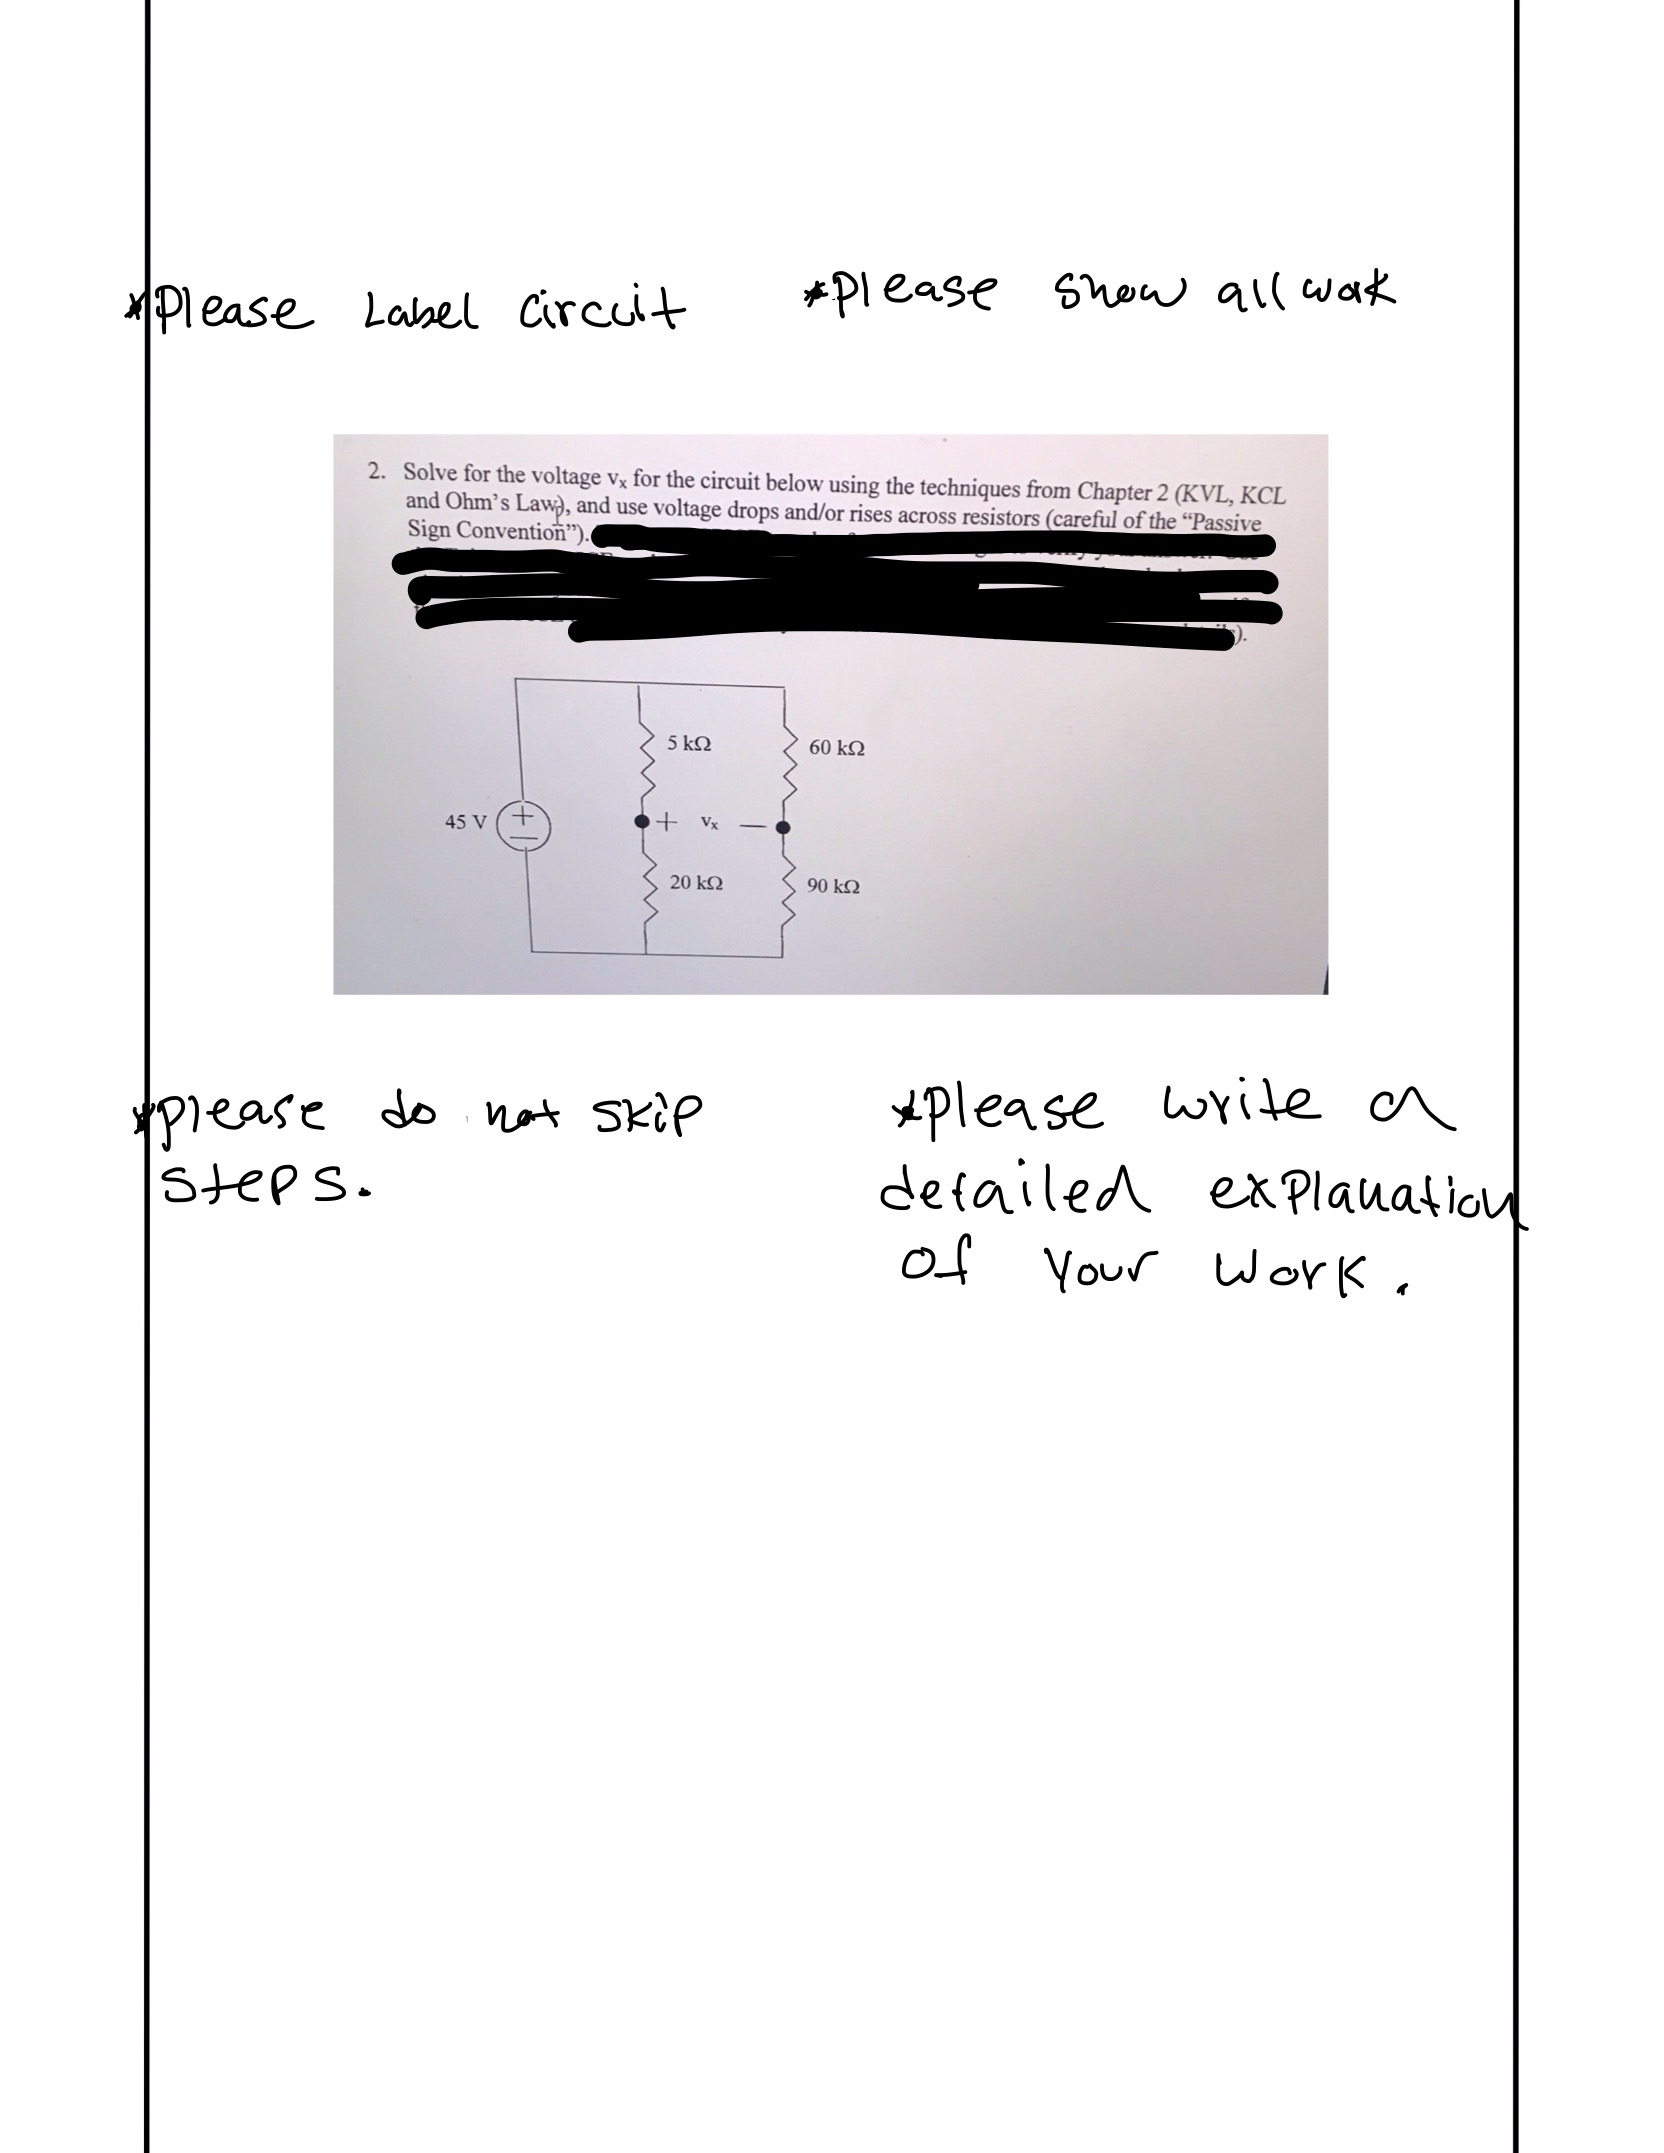 *Please Label Circuit
*Please show all work
2. Solve for the voltage vₓ for the circuit below using the techniques from Chapter 2 (KVL, KCL
and Ohm's Law), and use voltage drops and/or rises across resistors (careful of the "Passive
Sign Convention").
).
5 kΩ
60 kΩ
45 V
+
+ vₓ —
20 kΩ
90 kΩ
*please do not skip
steps.
*please write a
detailed explanation
of your work.